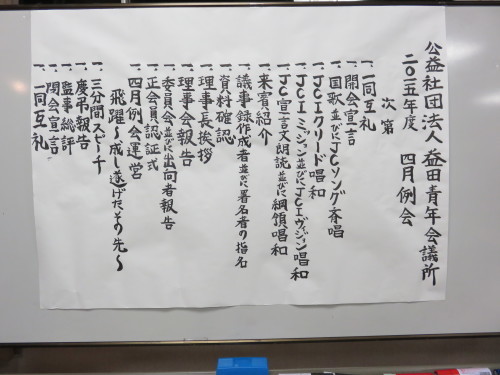 公益社団法人益田青年会議所
二〇一五年度 四月例会
次第
一、一同互礼
一、開会宣言
一、国歌並びにJCソング斉唱
一、JCIクリード唱和
一、JCIミッション並びにJCIヴィジョン唱和
一、JC宣言文朗読並びに綱領唱和
一、来賓紹介
一、議事録作成者並びに署名者の指名
一、資料確認
一、理事長挨拶
一、理事会報告
一、委員会並びに出向者報告
一、正会員認証式
一、四月例会運営
飛躍〜成し遂げたその先〜
一、三分間スピーチ
一、慶弔報告
一、監事総評
一、閉会宣言
一、一同互礼